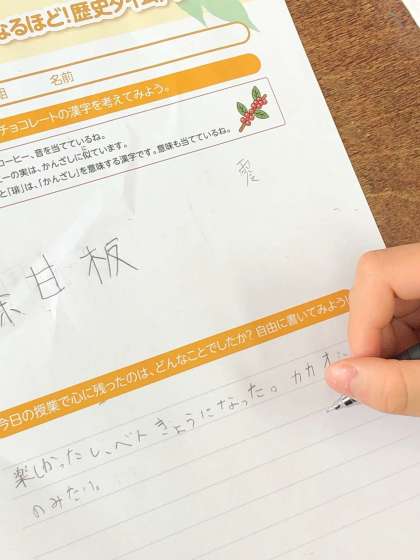 なるほど!歴史タイム
組 名前
チョコレートの漢字を考えてみよう。
コーヒー、音を当てているね。
ーの実は、かんざしに似ています。
と「琲」は、「かんざし」を意味する漢字です。意味も当てているね。
甘板
今日の授業で心に残ったのは、どんなことでしたか?自由に書いてみよう!
楽しかったし、ベトきょうになった。カカオ
のみたい。